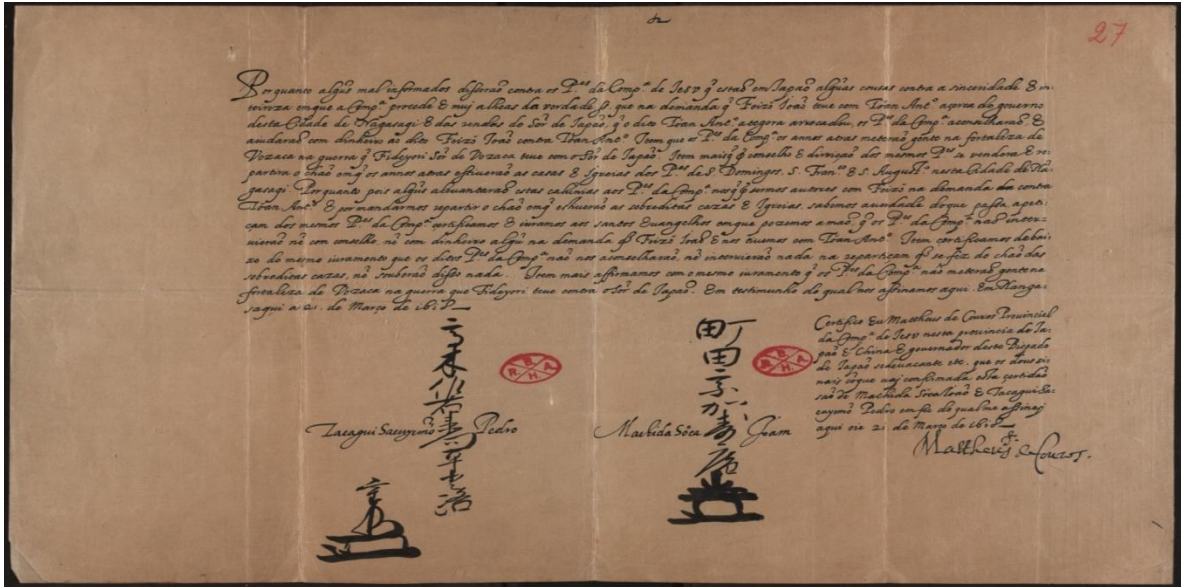 27
Porquanto algũs mal informados disseraõ contra os P.es da Comp.a de Iesv q̃ estaõ em Iapaõ algũas cousas contra a sinceridade & in-
teireza com que a Comp.a procede & muj alheas da verdade, que na demanda q̃ Feizó Ioaõ teue com Toan Ant.o açerca do gouerno
desta Cidade de Nagasaqi & das rendas do Sõr de Iapaõ, q̃ o dito Toan Ant.o ategora arrecadou, os P.es da Comp.a aconselharaõ &
aiudaraõ com dinheiro ao dito Feizó Ioaõ contra Toan Ant.o Item que os P.es da Comp.a os annos atras meteraõ gente na fortaleza de
Vozaca na guerra q̃ Fideyori Sõr de Vozaca teue com o Sõr de Iapaõ. Item mais q̃ conselho & direiçaõ dos mesmos P.es se vendera & re-
partira o chaõ em q̃ os annos atras estiueraõ as casas & Igreias dos P.es de S. Domingos, S. Fran.co & S. August.o nesta Cidade de Na-
gasaqi. Porquanto pois algũs aleuantaraõ estas calunias aos P.es da Comp.a nos q̃ sermos autores com Feizó na demanda contra
Toan Ant.o & por mandarmos repartir o chaõ em q̃ estiueraõ as sobreditas cazas & Igreias, sabemos a verdade do que passa, a peti-
çam dos mesmos P.es da Comp.a certificamos & iuramos aos santos Euangelhos em que pozemos a maõ, q̃ os P.es da Comp.a naõ inter-
uieraõ nẽ com conselho, nẽ com dinheiro algũ na demanda q̃ Feizó Ioaõ & nos tiuemos com Toan Ant.o Item certificamos debai-
xo do mesmo iuramento que os ditos P.es da Comp.a naõ nos aconselharaõ, nẽ interuieraõ nada na repartiçam q̃ se fez do chaõ das
sobreditas cazas, nẽ souberaõ disso nada. Item mais affirmamos com o mesmo iuramento q̃ os P.es da Comp.a naõ meteraõ gente na
fortaleza de Vozaca na guerra que Fideyori teue contra o Sõr de Iapaõ. Em testimunho do qual nos assinamos aqui. Em Nanga-
saqui a 21. de Março de
Certifico Eu Mattheus de Couros Prouincial
da Comp.a de Iesv nesta prouincia de Ia-
paõ & China & gouernador deste Bispado
de Iapaõ sedeuacante etc. que os dous si-
nais cõ que uaj confirmada esta certidaõ
saõ de Machida Sóca Ioaõ & Tacagui Sa-
cuyemõ Pedro em fé do qual me assinej
aqui oie 21 de Março de
Mattheus de Couros.
町田宗加
寿庵
Machida Sóca Joam
B R A H
高木作右衛門
Tacagui Sacuyemõ Pedro
B R A H